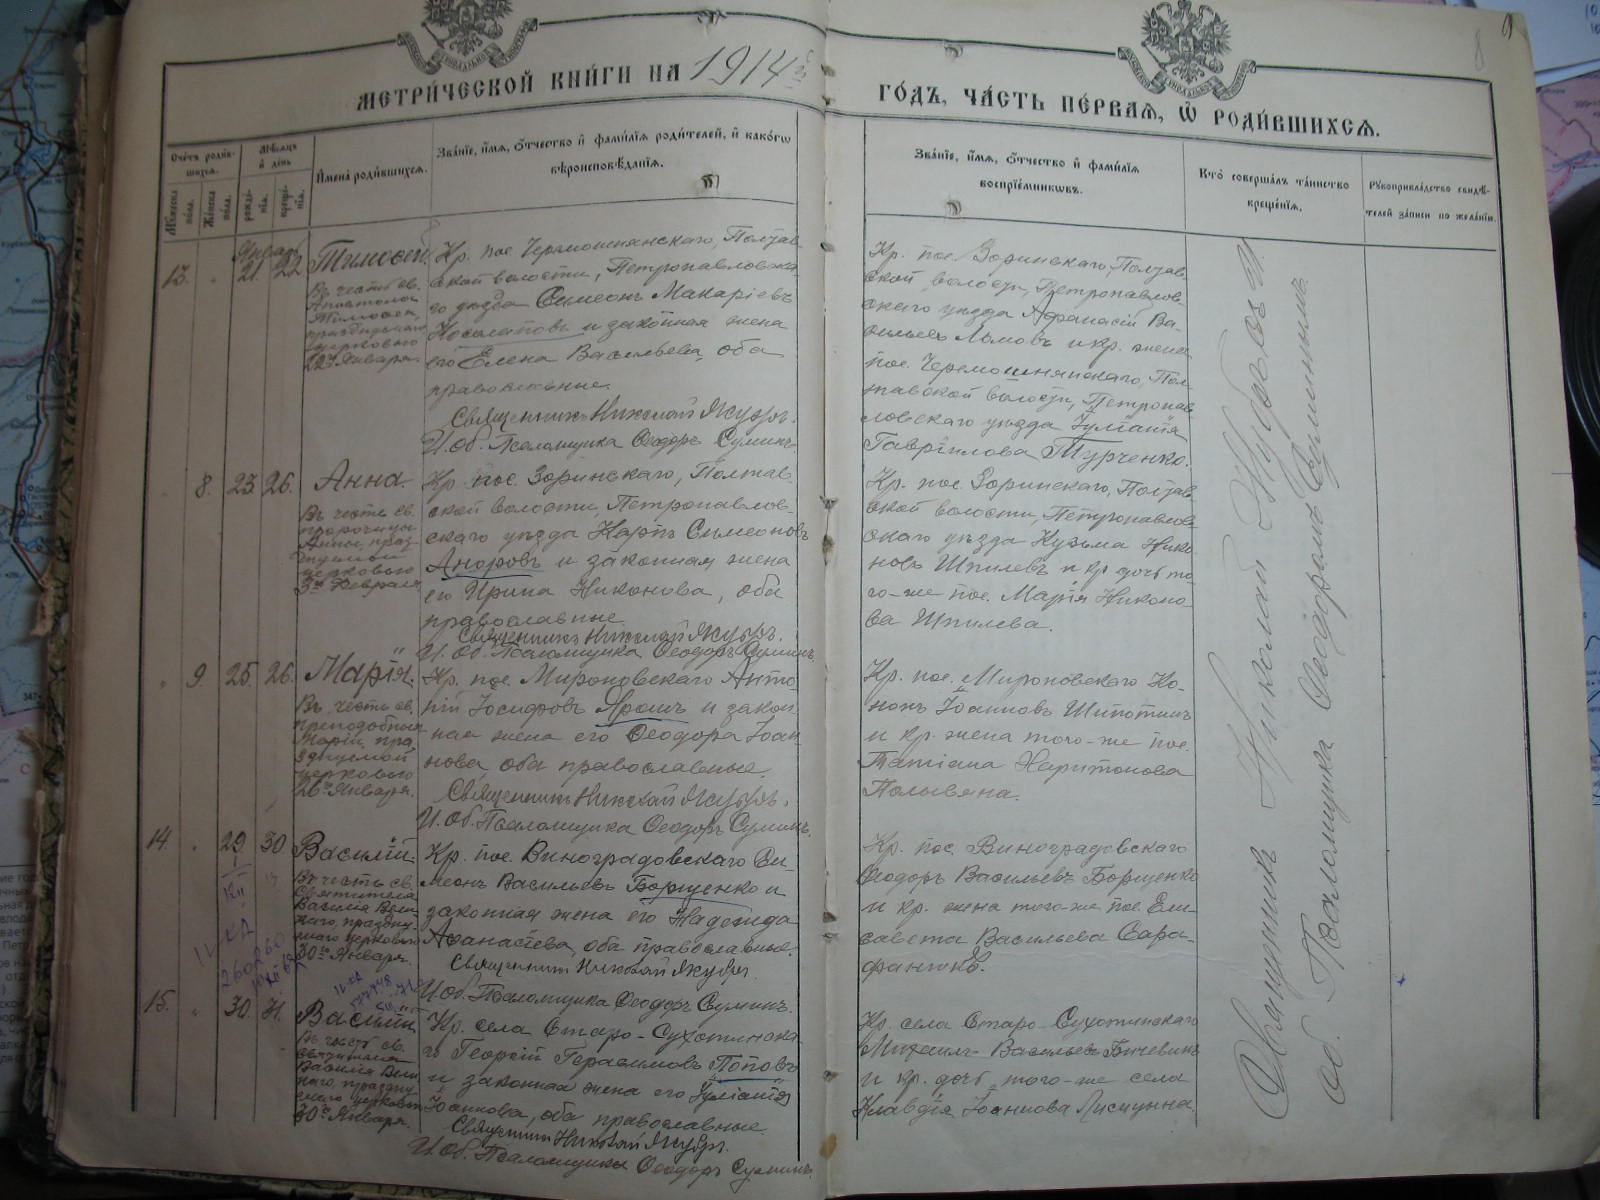 МЕТРИ́ЧЕСКОЙ КНИ́ГИ НА 1914 й
ГО́ДЪ, ЧА́СТЬ ПЕ́РВАЯ, Ѡ҆ РОДИ́ВШИХСѦ.
8
Сче́тъ роди́в-
шихся.
Мѣ́сяцъ
и҆ день
Му́жеска
по́ла.
Же́нска
по́ла.
рожде́-
нїя.
креще́-
нїя.
И҆мена̀ роди́вшихся.
Зва́нїе, и҆́мя, ѻ҆́тчество и҆ фами́лїя роди́телей, и҆ како́гѡ
вѣроисповѣ́данїя.
Зва́нїе, и҆́мя, ѻ҆́тчество и҆ фами́лїя
воспрїе́мникѡвъ.
Кто̀ соверша́лъ та́инство
креще́нїя.
Рукоприкла́дство свидѣ́-
телей за́писи по жела́нїю.
Январь
13. 21. 22. Тимофей.
Въ честь св.
Апостола
Тимофея,
церковью
22го Января.
Кр. пос. Черемошнянскаго, Полтав-
ской волости, Петропавловска-
го уѣзда Симеонъ Макаріевъ
и законная жена
его Елена Васильева, оба
православные.
Священникъ Николай Якубъ.
И. Об. Псаломщика Ѳеодоръ Суминъ.
Кр. пос. Зоринскаго, Полтав-
ской волости, Петропавлов-
скаго уѣзда Афанасій Ва-
сильевъ Ломовъ и кр. жена
пос. Черемошнянскаго, Пол-
тавской волости, Петропав-
ловскаго уѣзда Іуліанія
Гавріилова Турченко.
8. 25. 26. Анна.
Въ честь св.
пророчицы
Анны, праз-
дуемой
церковью
3го Февраля.
Кр. пос. Зоринскаго, Полтав-
ской волости, Петропавлов-
скаго уѣзда Карпъ Симеоновъ
и законная жена
его Ирина Никонова, оба
православные.
Священникъ Николай Якубъ.
И. Об. Псаломщика Ѳеодоръ Суминъ.
Кр. пос. Зоринскаго, Полтав-
ской волости, Петропавлов-
скаго уѣзда Кузьма Нико-
новъ Шпилевъ и кр. дочь то-
го-же пос. Марія Никоно-
ва Шпилева.
9. 25. 26. Марія.
Въ честь св.
преподобныя
Маріи, праз-
днуемой
церковью
26го Января.
Кр. пос. Мироновскаго Анто-
ній Іосифовъ Ярошъ и закон-
ная жена его Ѳеодора Іоан-
нова, оба православные.
Священникъ Николай Якубъ.
И. Об. Псаломщика Ѳеодоръ Суминъ.
Кр. пос. Мироновскаго Ко-
нонъ Іоанновъ
и кр. жена того-же пос.
Татіана Харитонова
14. 29. 30. Василій.
Въ честь св.
Святителя
Василія Вели-
каго, праздну-
емаго церковью
30го Января.
Кр. пос. Виноградовскаго Си-
меонъ Васильевъ Борщенко и
законная жена его Надежда
Аѳанасіева, оба православные.
Священникъ Николай Якубъ.
И. Об. Псаломщика Ѳеодоръ Суминъ.
Кр. пос. Виноградовскаго
Ѳеодоръ Васильевъ Борщенко
и кр. жена того-же пос. Ели-
савета Васильева Сара-
15. 30. 31. Василій.
Въ честь св.
святителя
Василія Вели-
каго, праздну-
емаго церковью
30го Января.
Кр. села Старо-Сухотинска-
го Георгій Герасимовъ Поповъ
и законная жена его Іуліанія
Іоаннова, оба православные.
Священникъ Николай Якубъ.
И. Об. Псаломщика Ѳеодоръ Суминъ.
Кр. села Старо-Сухотинскаго
Михаилъ Васильевъ
и кр. дочь того-же села
Клавдія Іоаннова Лисицына.
Священникъ Николай Якубъ И.
об. Псаломщика Ѳеодоръ Суминъ.